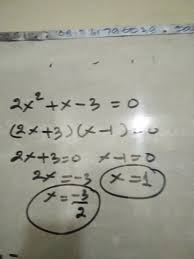 2x² + x - 3 = 0
(2x+3)(x-1)=0
2x+3=0 x-1=0
2x=-3 x=1
x=-3/2